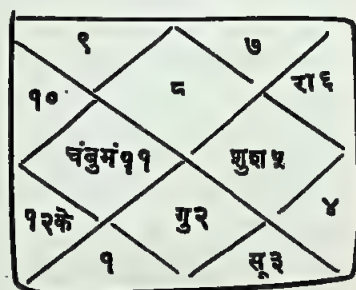 ९ ७
१० ८ रा६
चंबुमं११ शुश५
१२के गु२ ४
१ सू३